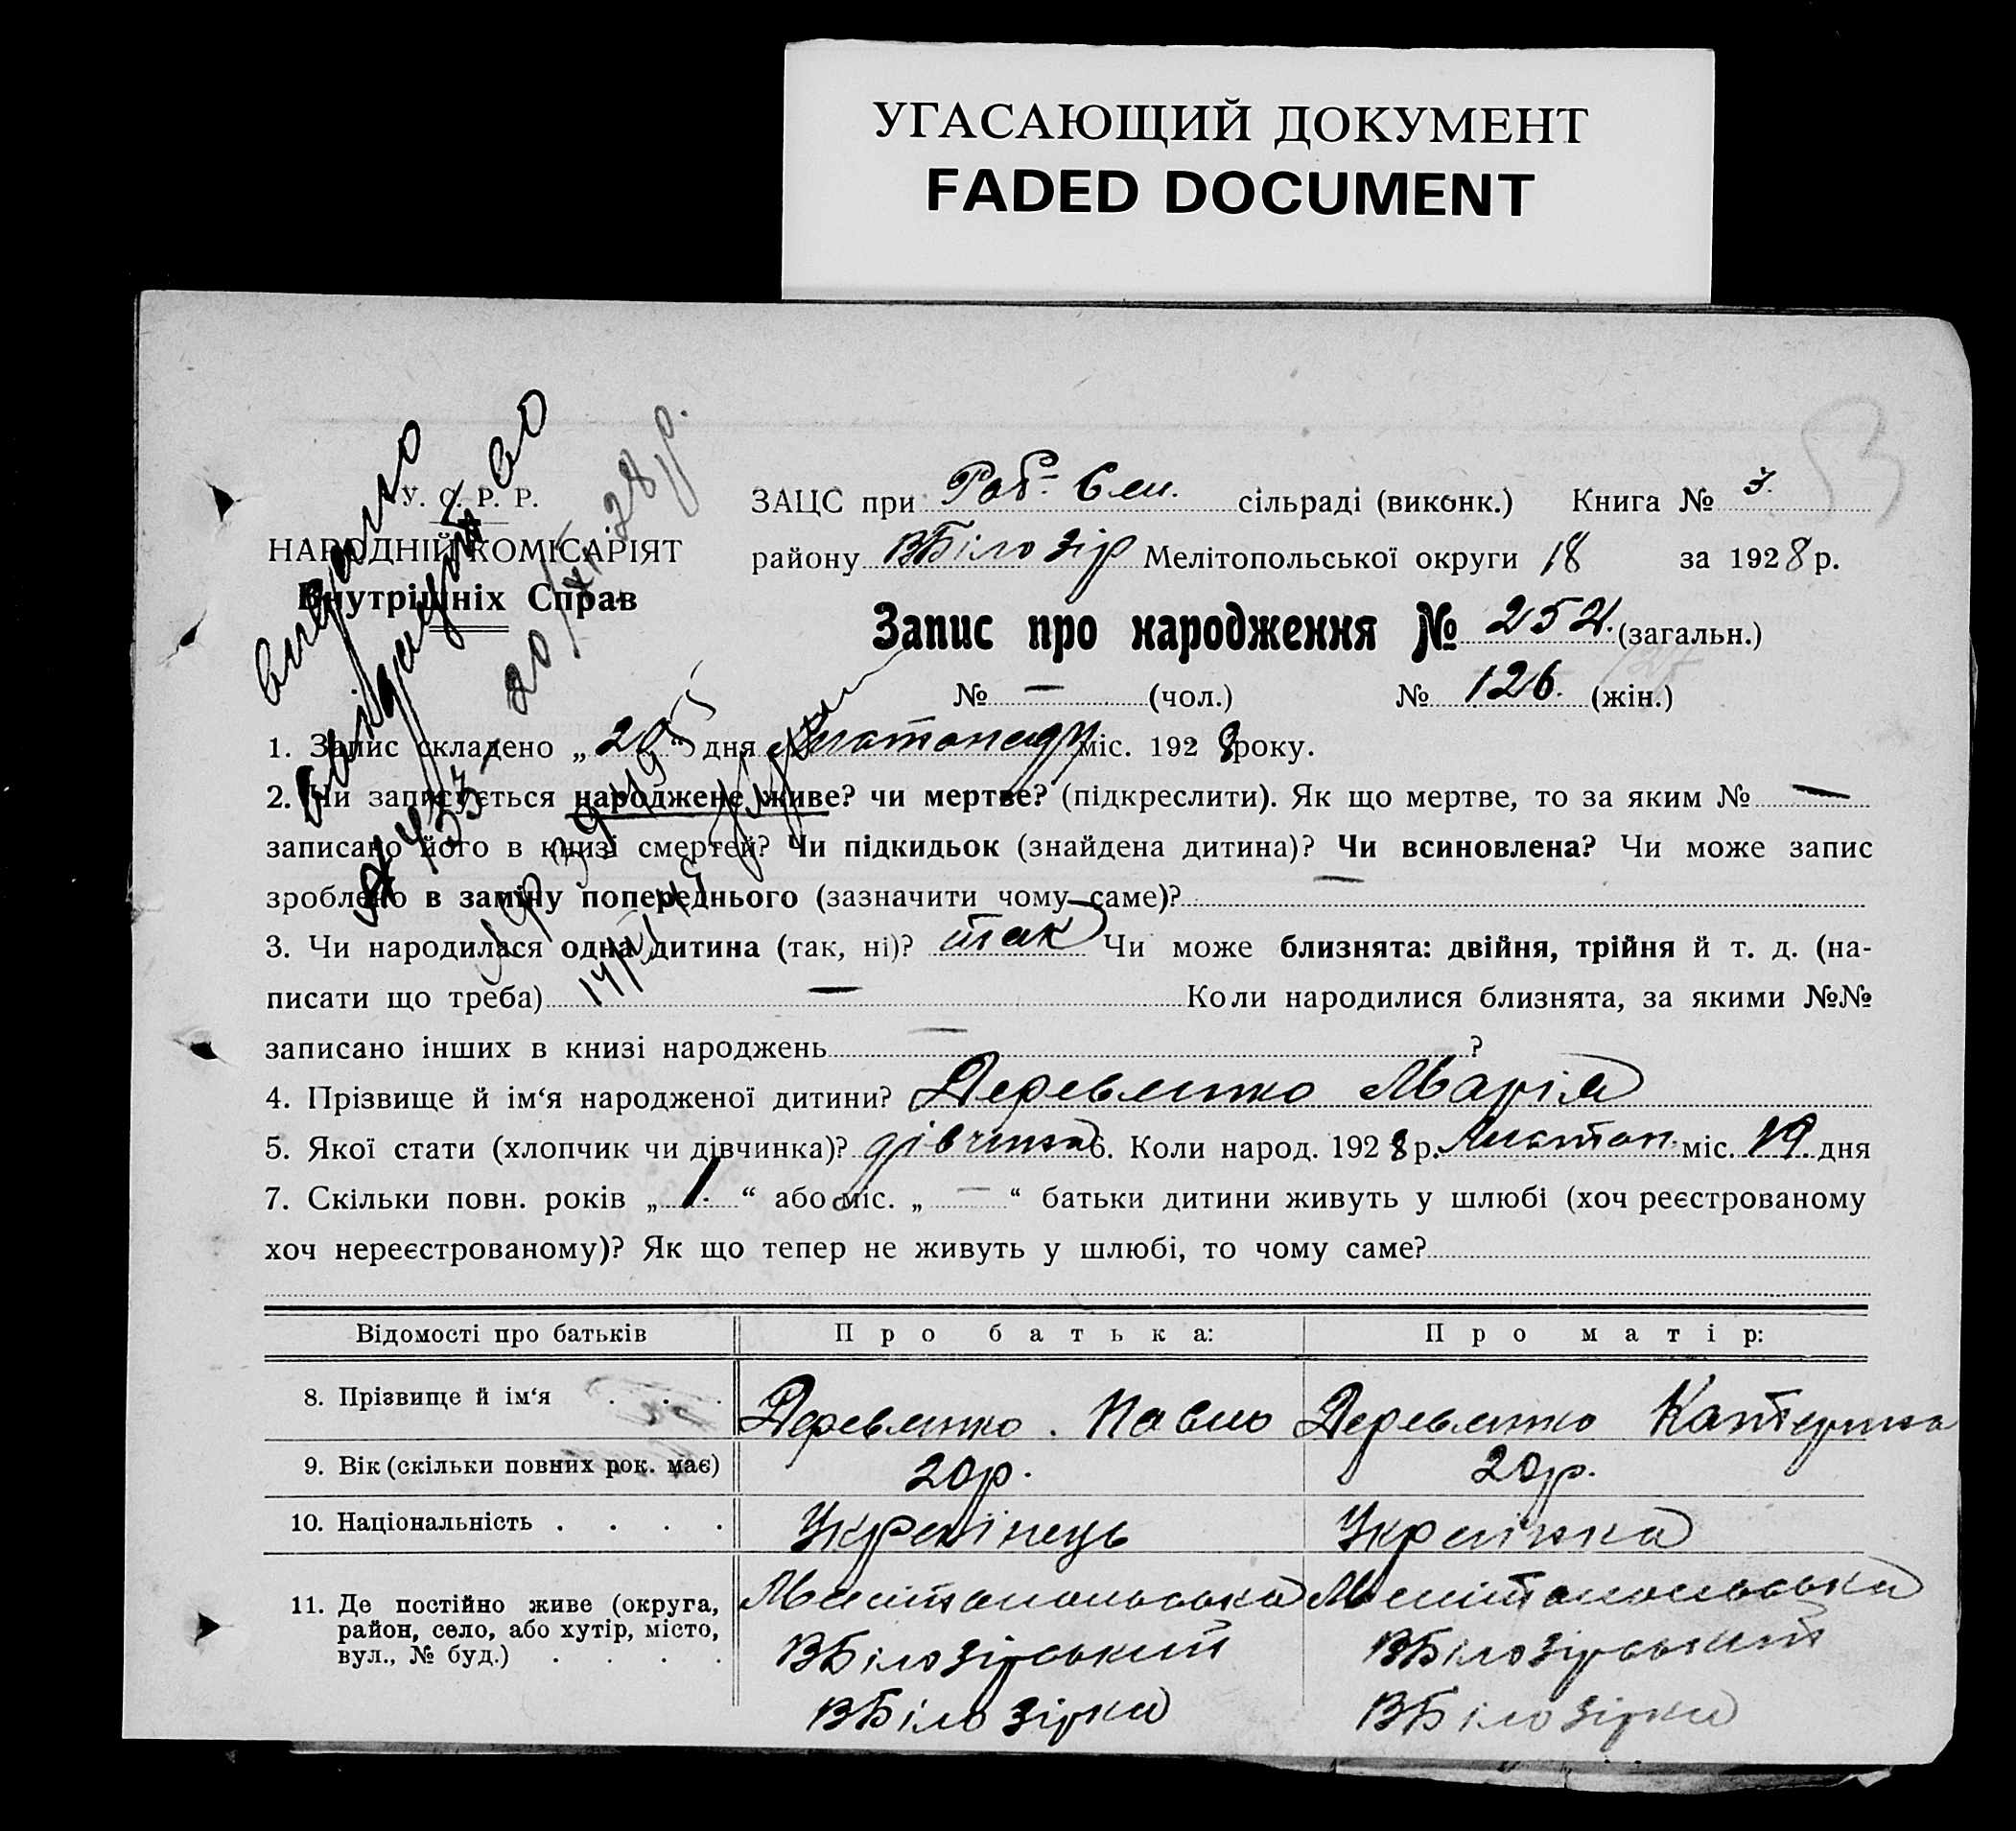 УГАСАЮЩИЙ ДОКУМЕНТ
FADED DOCUMENT
53
У. С. Р. Р.
НАРОДНІЙ КОМІСАРІЯТ
Внутрішніх Справ
видано
свідоцтво
№ 433
20/XI 28 р.
ЗАЦС при Роб. Сел. сільраді (виконк.) Книга № 3.
району ВБілозір Мелітопольської округи 18 за 1928 р.
Запис про народження № 252. (загальн.)
№ — (чол.) № 126. (жін.)
1. Запис складено „20“ дня Листопаду міс. 1928 року.
2. Чи записується народжене живе? чи мертве? (підкреслити). Як що мертве, то за яким № —
записано його в книзі смертей? Чи підкидьок (знайдена дитина)? Чи всиновлена? Чи може запис
зроблено в заміну попереднього (зазначити чому саме)? —
3. Чи народилася одна дитина (так, ні)? так Чи може близнята: двійня, трійня й т. д. (на-
писати що треба) — Коли народилися близнята, за якими №№
записано інших в книзі народжень — ?
4. Прізвище й ім‘я народженої дитини? Деревлянко Марія
5. Якої стати (хлопчик чи дівчинка)? дівчина 6. Коли народ. 1928 р. Листоп. міс. 19. дня
7. Скільки повн. років „1.“ або міс. „—“ батьки дитини живуть у шлюбі (хоч реєстрованому
хоч нереєстрованому)? Як що тепер не живуть у шлюбі, то чому саме?
Відомості про батьків Про батька: Про матір:
8. Прізвище й ім‘я . . . Деревлянко. Павло Деревлянко Катерина
9. Вік (скільки повних рок. має) 20р. 20р.
10. Національність . . . . Українець Українка
11. Де постійно живе (округа, Мелітопольська Мелітопольська
район, село, або хутір, місто, ВБілозірський ВБілозірський
вул., № буд.) . . . . ВБілозірка ВБілозірка